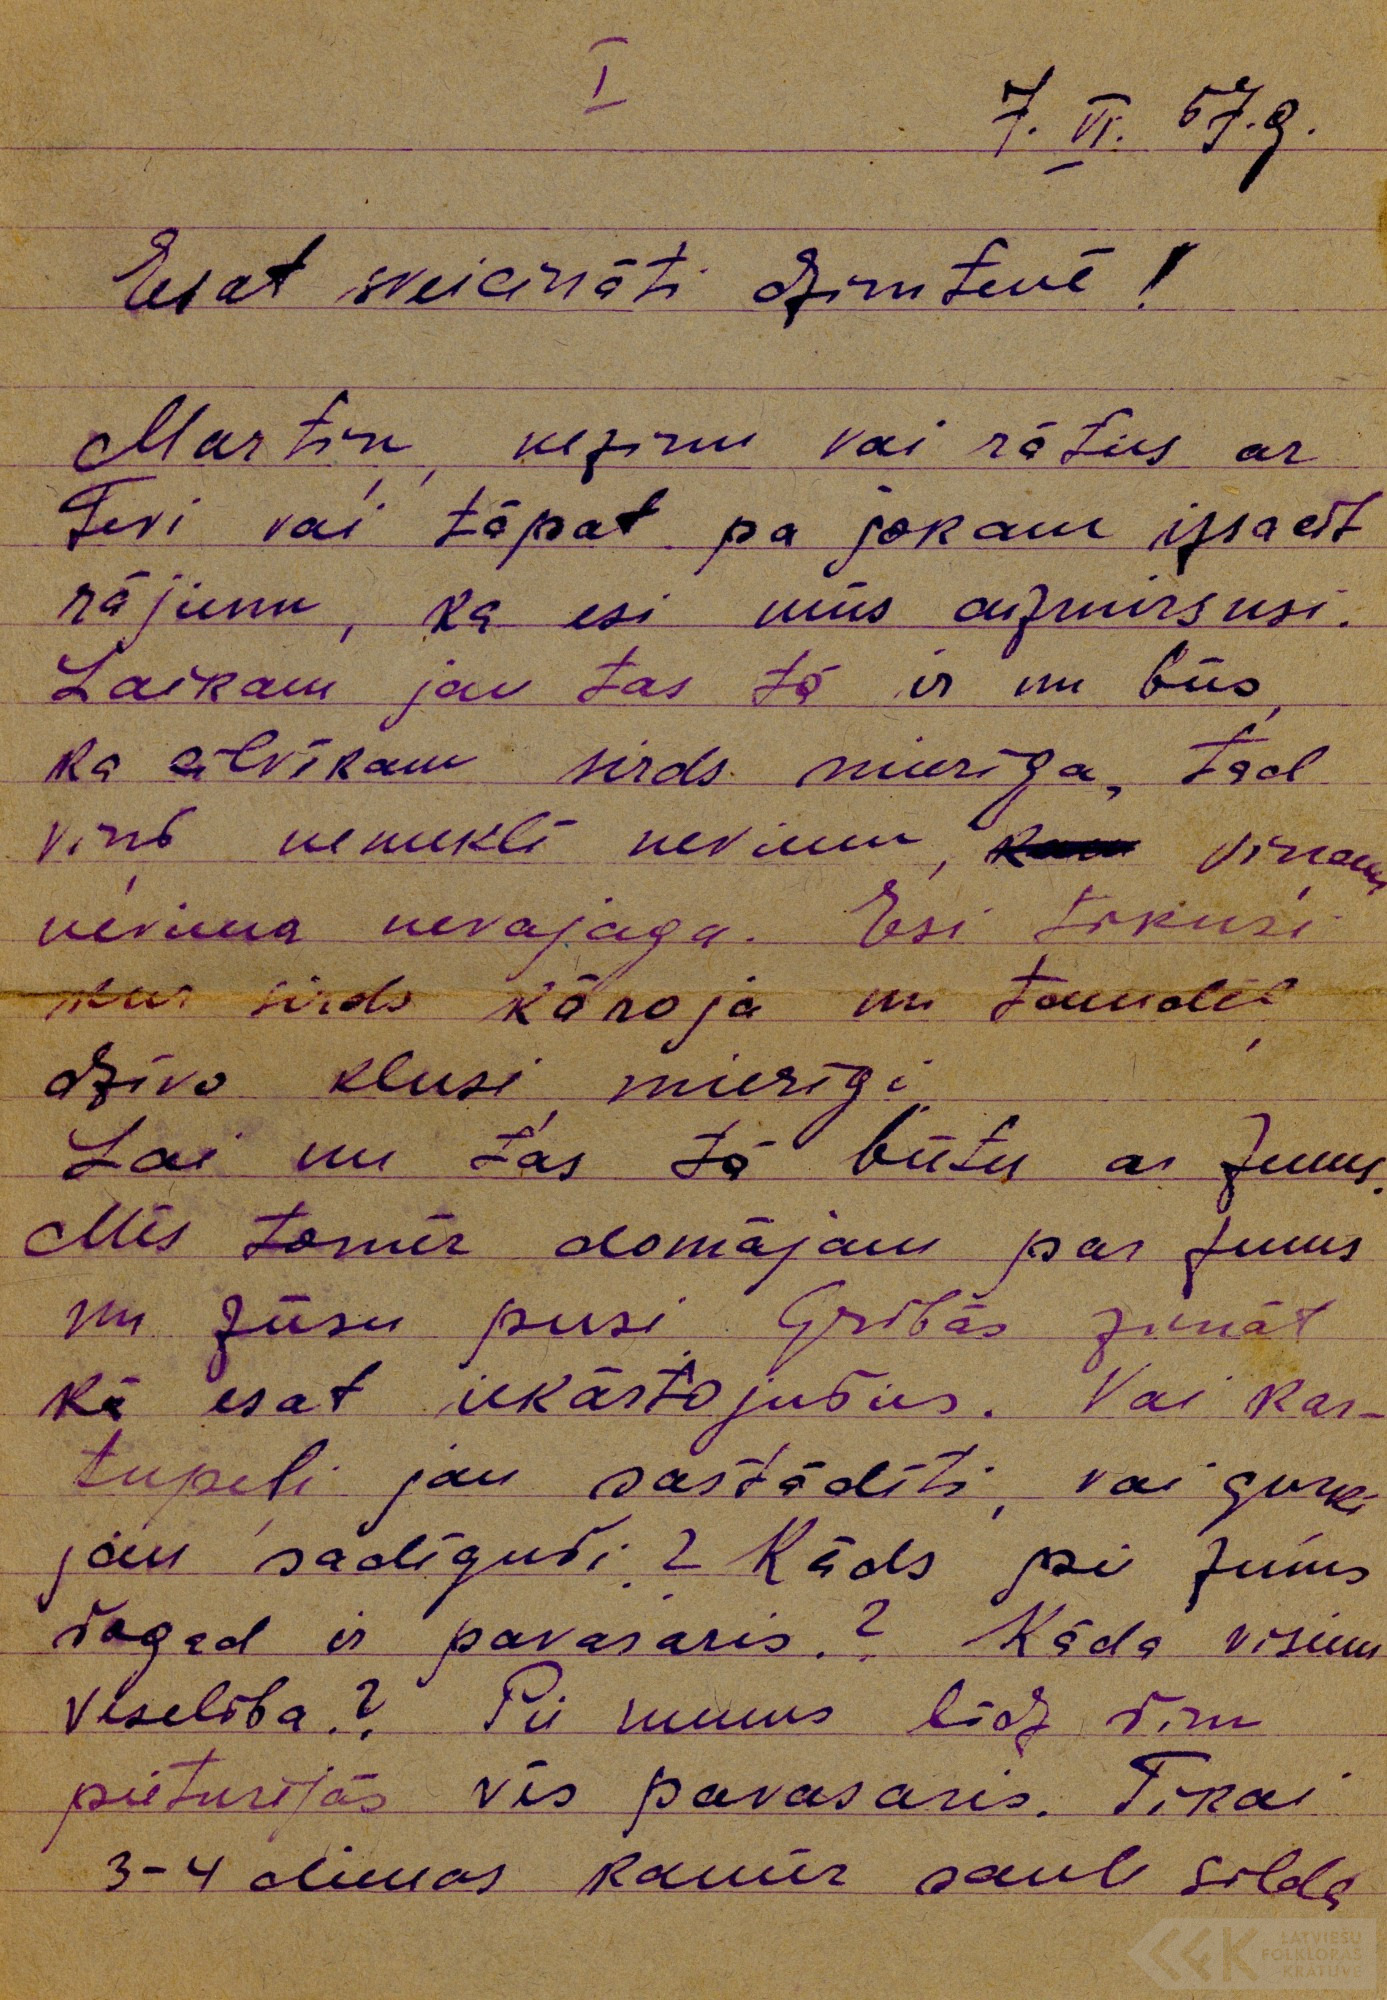 I
7. VI. 57.g.
Esat sveicināti dzimtenē!
Martiņ, nezinu vai rāties ar
Tevi vai tāpat pa jokam izsacīt
rājienu, ka esi mūs aizmirsusi.
Laikam jau tas tā ir un būs,
ka cilvēkam sirds mierīga, tad
viņš nemeklē nevienu, viņam
neviena nevajaga. Esi tikusi
kur sirds kāroja un tamdēļ
dzīvo klusi, mierīgi.
Lai nu tas tā būtu ar Jums.
Mēs tomēr domājam par Jums
un Jūsu pusi. Gribās zināt
kā esat iekārtojušies. Vai kar-
tupeļi jau sastādīti, vai gurķi
jau sadīguši? Kāds pie Jums
šogad ir pavasaris? Kāda visiem
veselība? Pie mums līdz šim
pieturējās vēs pavasaris. Tikai
3-4 dienas kamēr saule silda
LATVIEŠU
FOLKLORAS
KRĀTUVE